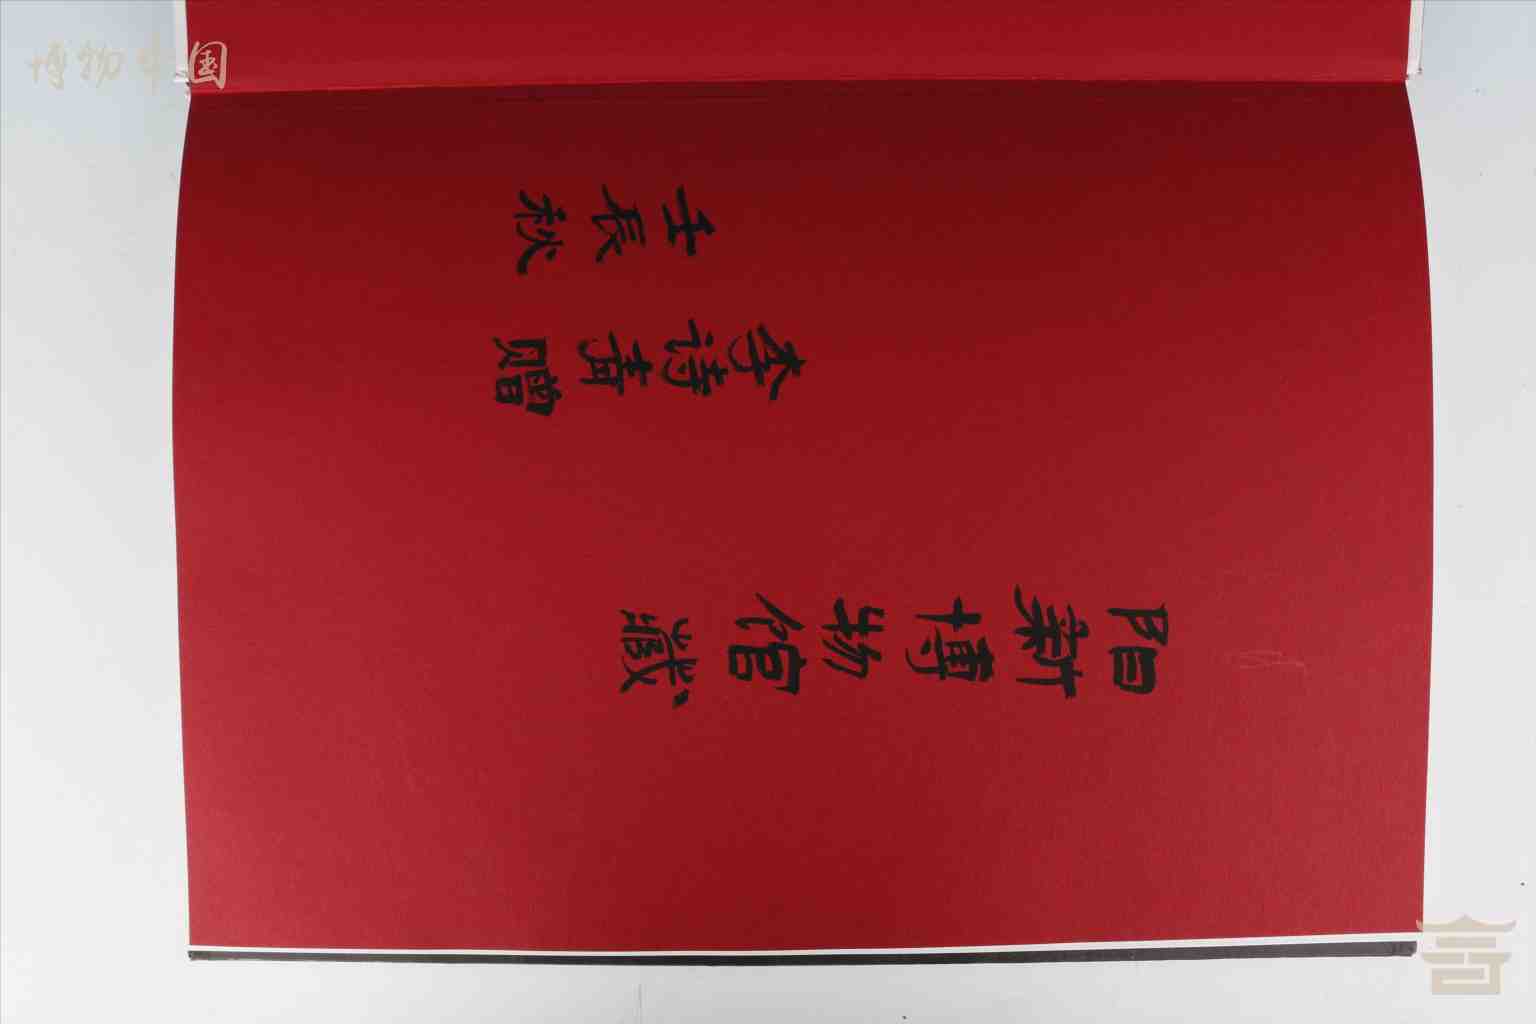 阳新博物馆藏
李诗青赠
壬辰秋
博物中国